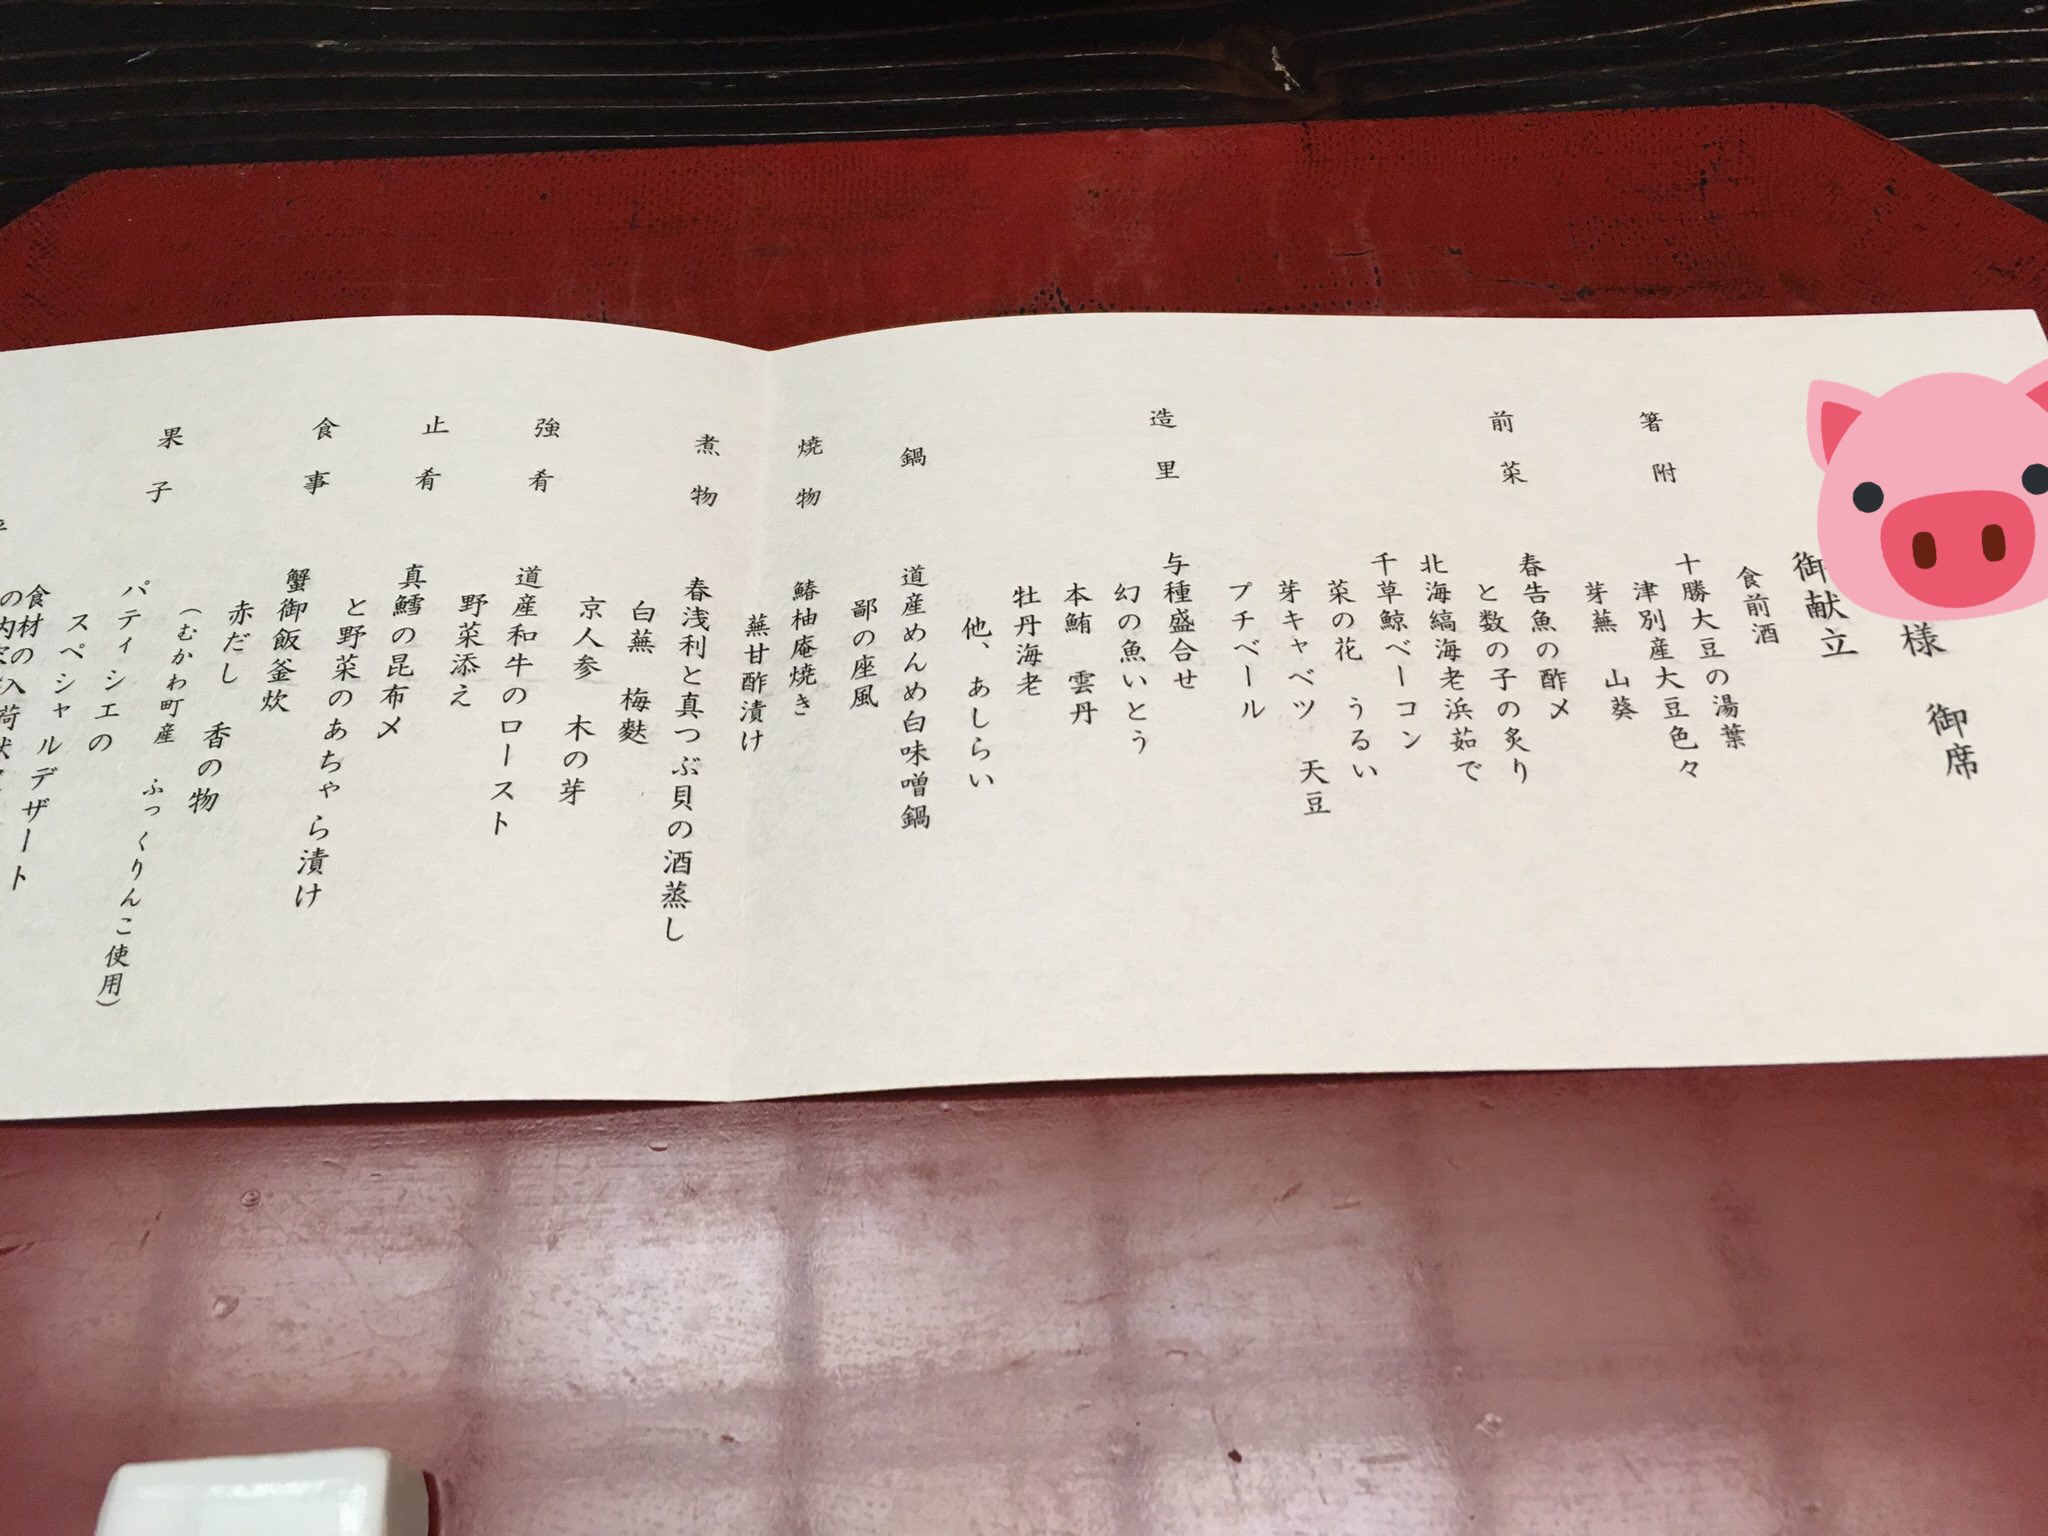 様 御席
御献立
食前酒
箸附 十勝大豆の湯葉
津別産大豆色々
芽蕪 山葵
前菜 春告魚の酢〆
と数の子の炙り
北海縞海老浜茹で
千草鯨ベーコン
菜の花 うるい
芽キャベツ 天豆
プチベール
造里 与種盛合せ
幻の魚いとう
本鮪 雲丹
牡丹海老
他、あしらい
鍋 道産めんめ白味噌鍋
鄙の座風
焼物 鰆柚庵焼き
蕪甘酢漬け
煮物 春浅利と真つぶ貝の酒蒸し
白蕪 梅麩
京人参 木の芽
強肴 道産和牛のロースト
野菜添え
止肴 真鱈の昆布〆
と野菜のあちゃら漬け
食事 蟹御飯釜炊
赤だし 香の物
（むかわ町産 ふっくりんこ使用）
果子 パティシエの
スペシャルデザート
食材の入荷状
の内